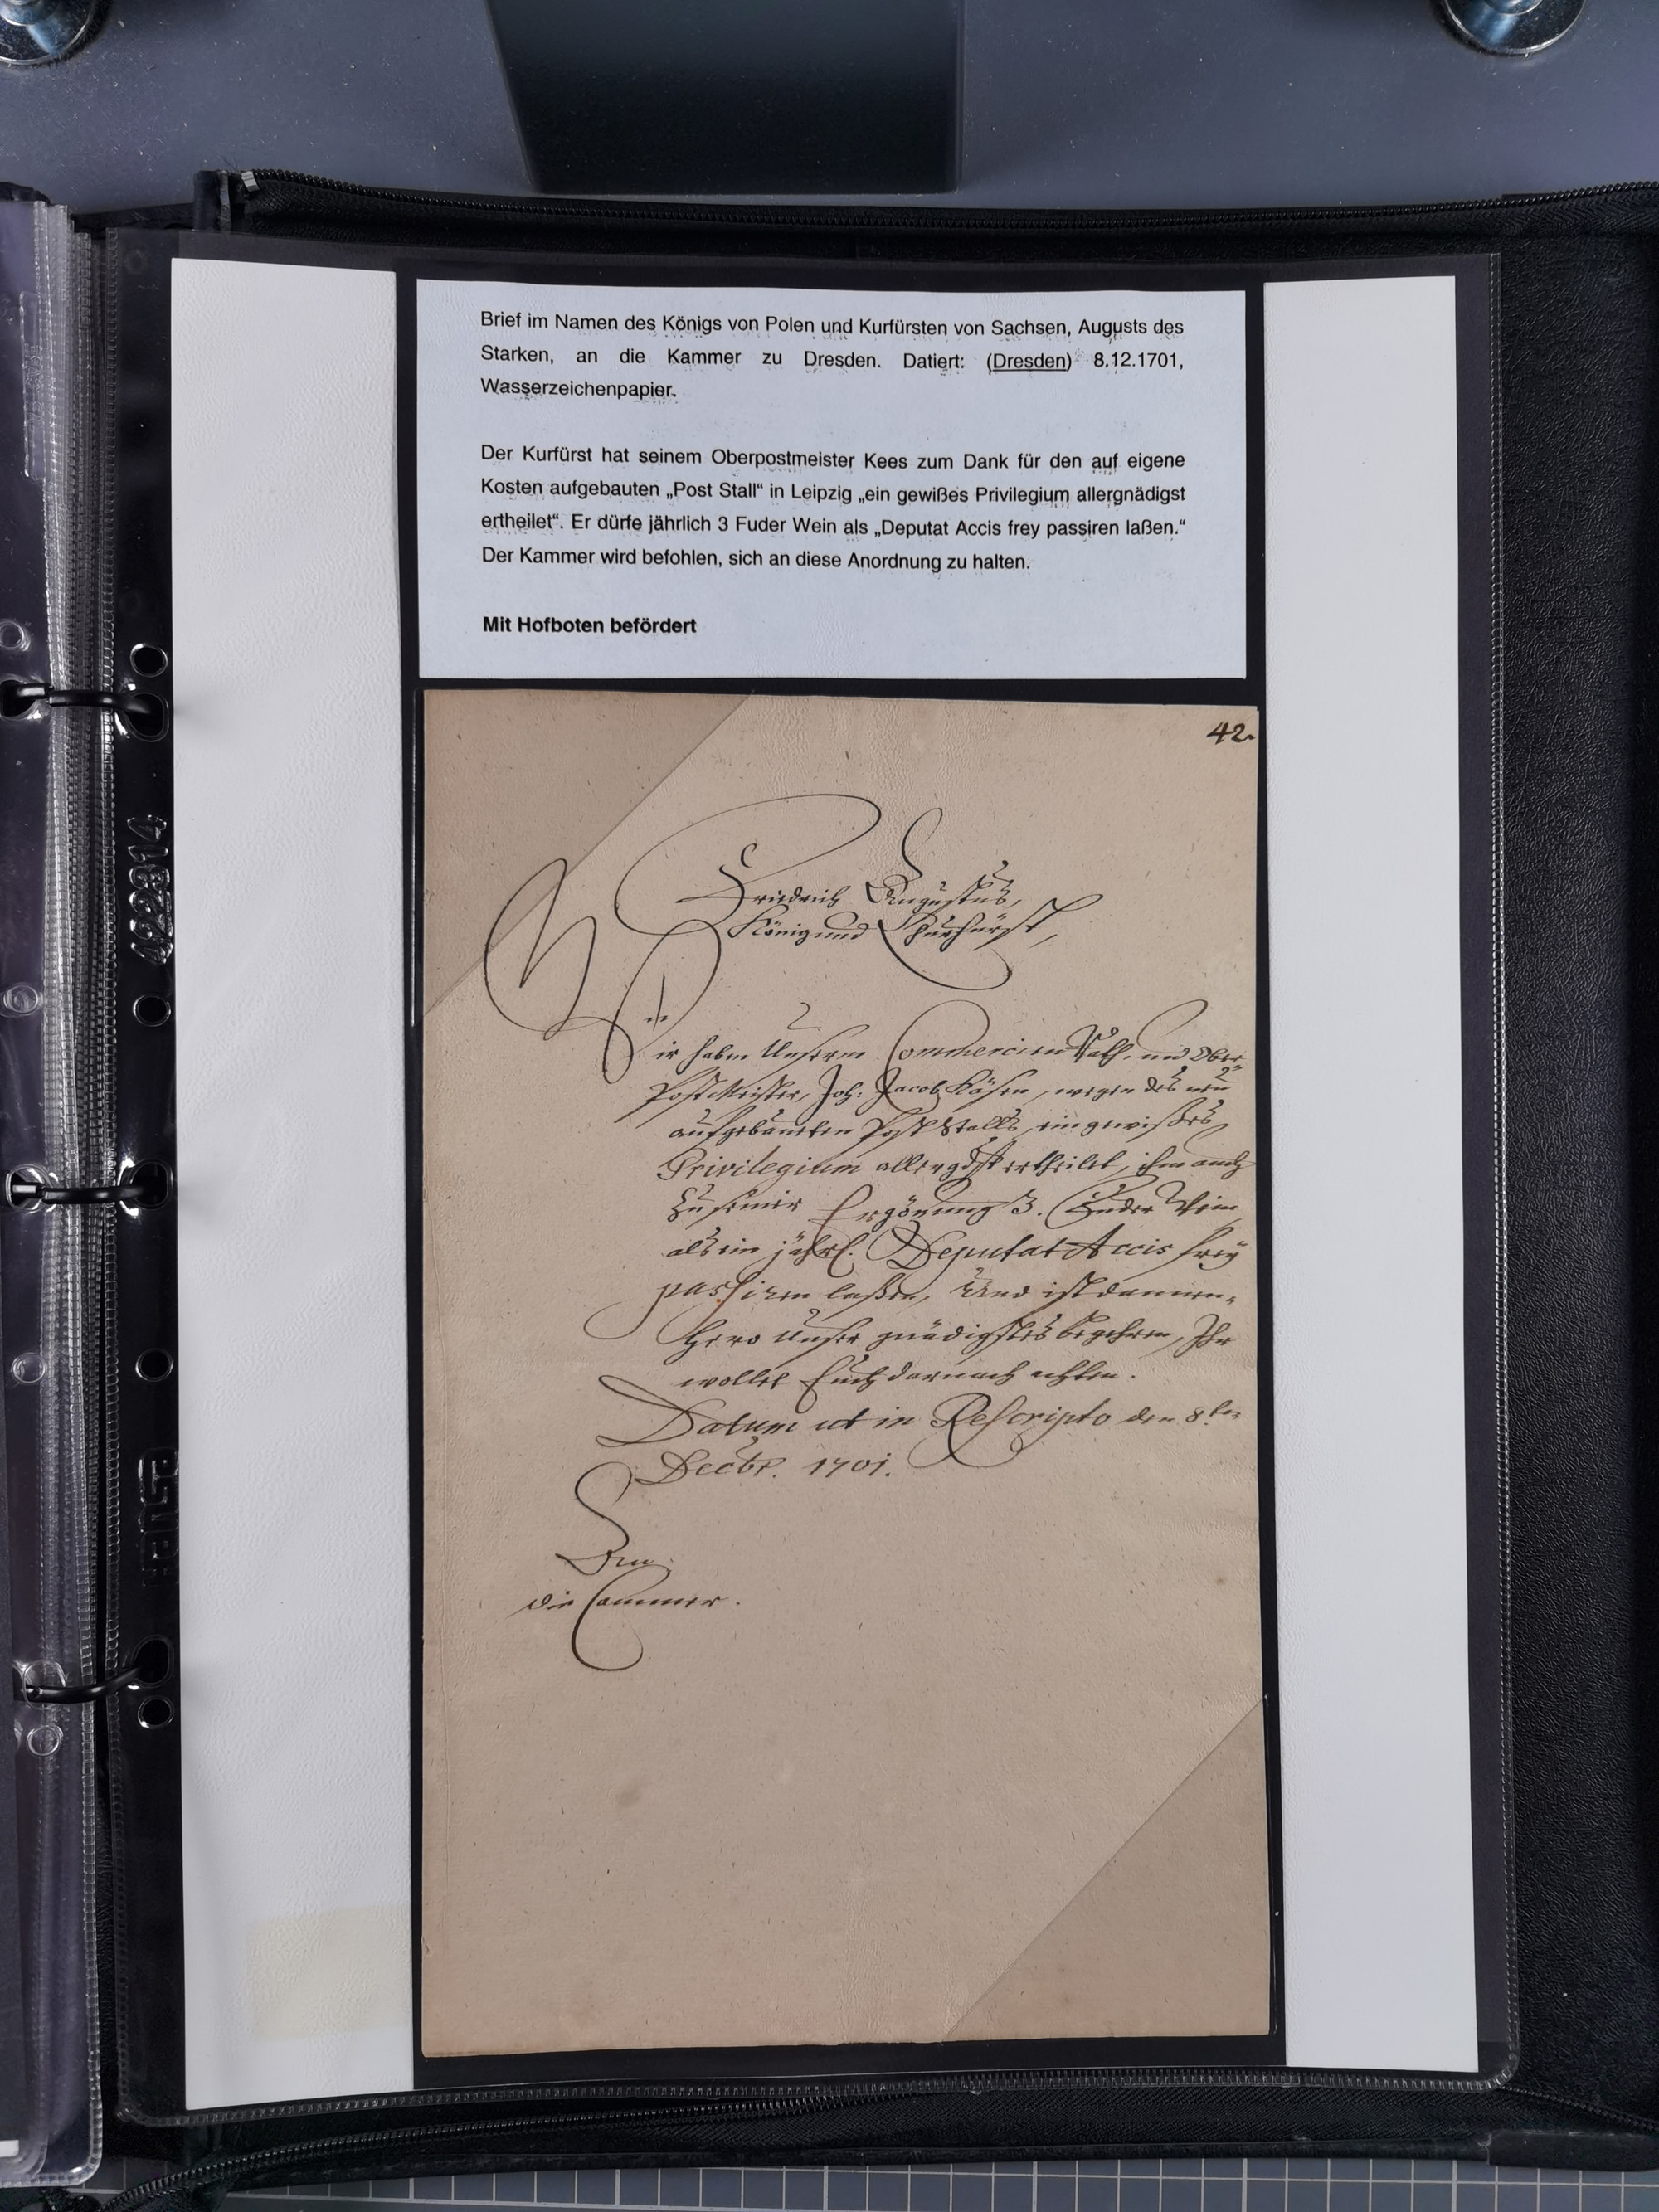 Brief im Namen des Königs von Polen und Kurfürsten von Sachsen, Augusts des
Starken, an die Kammer zu Dresden. Datiert: (Dresden) 8.12.1701,
Wasserzeichenpapier.
Der Kurfürst hat seinem Oberpostmeister Kees zum Dank für den auf eigene
Kosten aufgebauten „Post Stall“ in Leipzig „ein gewißes Privilegium allergnädigst
ertheilet“. Er dürfe jährlich 3 Fuder Wein als „Deputat Accis frey passiren laßen.“
Der Kammer wird befohlen, sich an diese Anordnung zu halten.
Mit Hofboten befördert
42.
Friedrich Augustus,
König und Churfürst,
Wir haben Unserm Commercien Rath, und Ober-
PostMeister, Joh: Jacob Käsen, wegen des neu
aufgebaueten Post Stalls, ein gewißes
Privilegium allergdst ertheilet, ihm auch
zu seiner Ergözung 3. Fuder Wein
als ein jährl. Deputat Accis frey
passiren laßen, Und ist dannen-
hero Unser gnädigstes begehren, Ihr
wollet Euch darnach achten.
Datum ut in Rescripto den 8ten
Decbr. 1701.
An
die Cammer.
422314